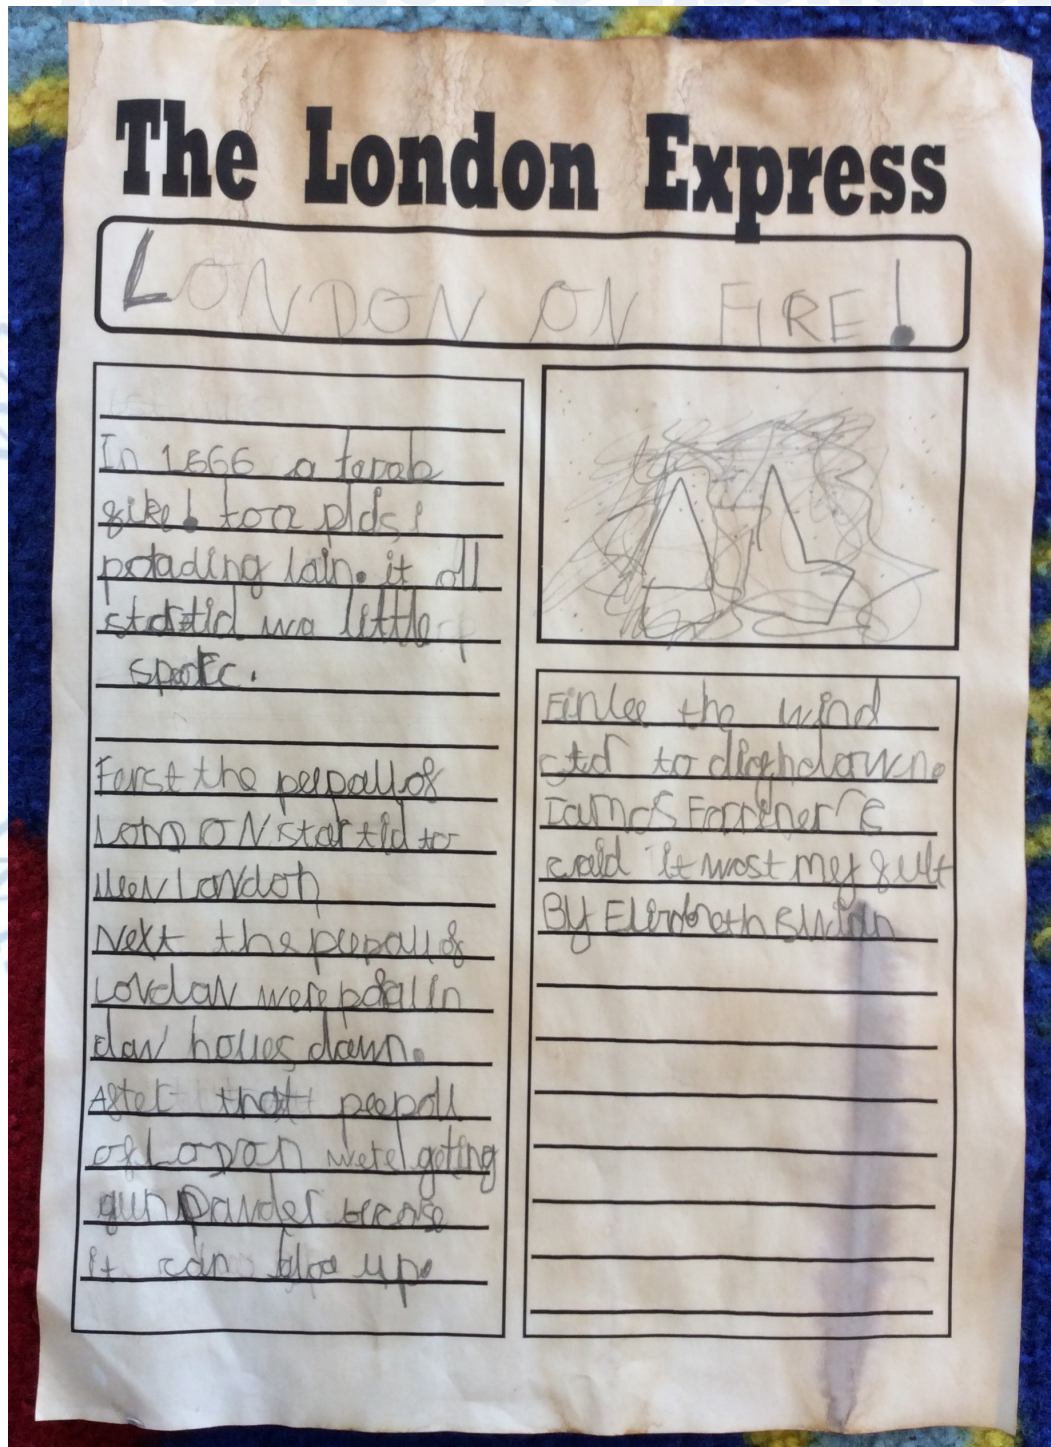 The London Express
LONDON ON FIRE!
In 1666 a terab
fire! toa plds i
potading lain. it all
startid wa little
spark.
Farst the peepall of
LONDON startid to
London
Next the peepall of
London were poallin
daw houes dawn.
After that peepoll
of LoDon were goting
gun Pawder
it can bloo up.
Finlee the wind
to digh dawn.
Farriner
said it wost my fult
By